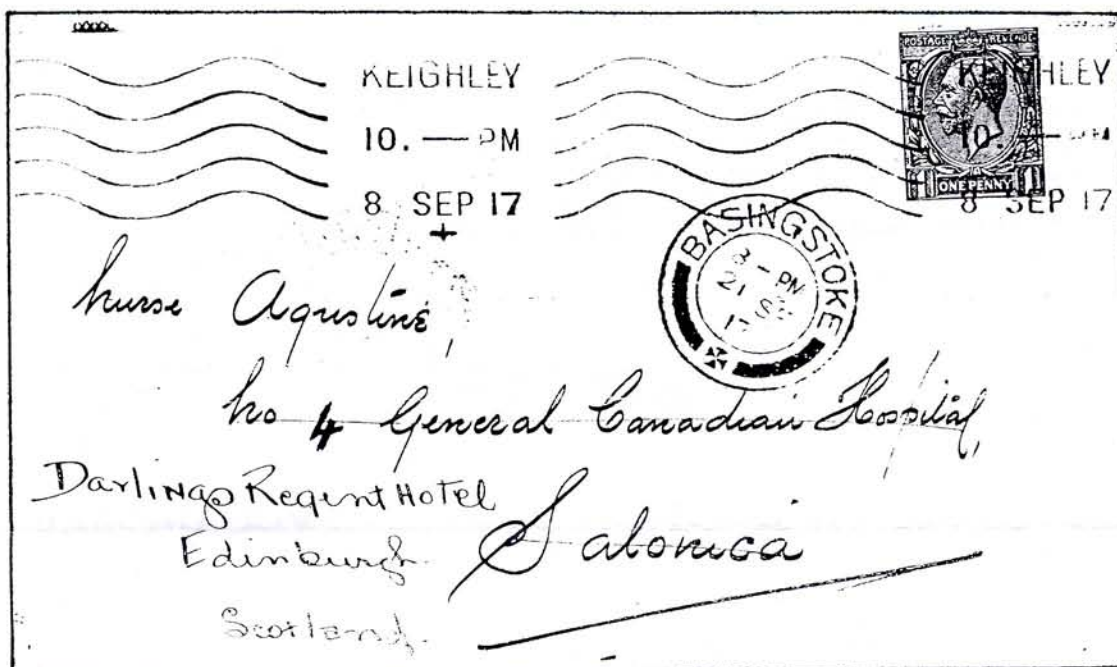 KEIGHLEY
10. — PM
8 SEP 17
POSTAGE REVENUE
ONE PENNY
KEIGHLEY
10. — PM
8 SEP 17
BASINGSTOKE
8 – PM
21 SP
17
Nurse Agustine,
No 4 General Canadian Hospital,
Salonica
Darlings Regent Hotel
Edinburgh
Scotland.